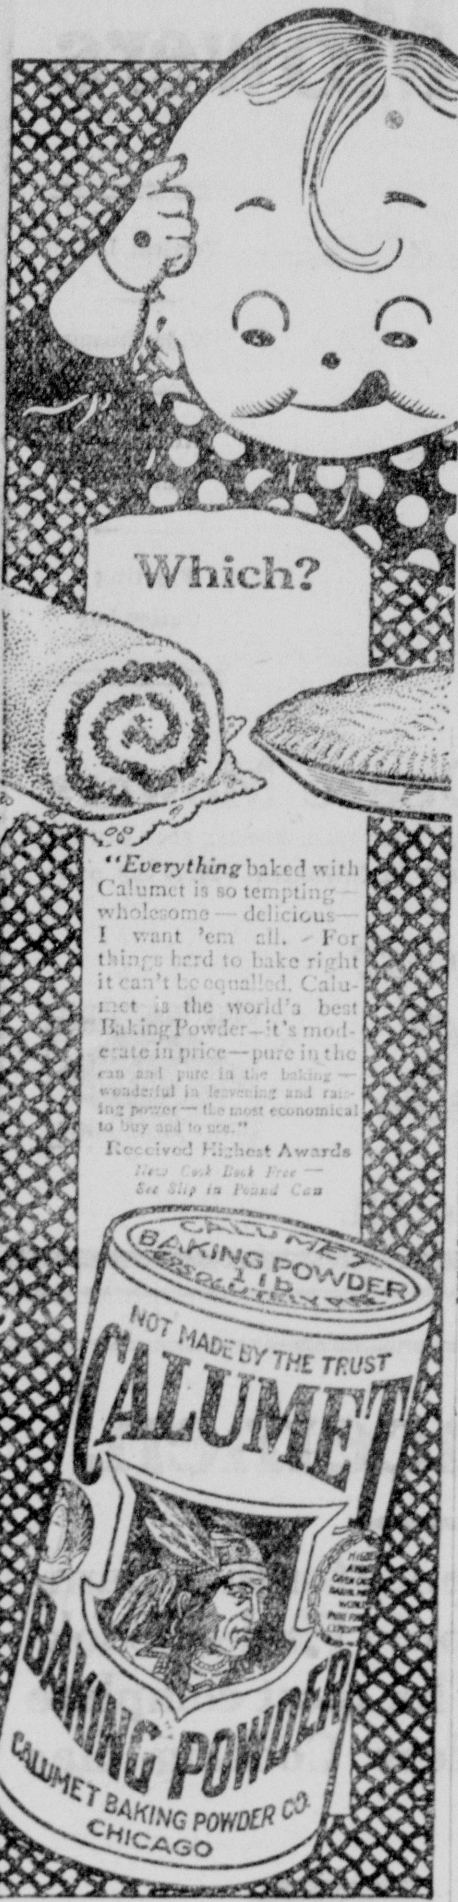 Which?
"Everything baked with
Calumet is so tempting—
wholesome — delicious—
I want 'em all. - For
things hard to bake right
it can't be equalled. Calu-
met is the world's best
Baking Powder—it's mod-
erate in price—pure in the
can and pure in the baking —
wonderful in leavening and rais-
ing power — the most economical
to buy and to use."
Received Highest Awards
New Cook Book Free —
See Slip in Pound Can
CALUMET
BAKING POWDER
1 lb
ABSOLUTELY
NOT MADE BY THE TRUST
CALUMET
BAKING POWDER
CALUMET BAKING POWDER CO.
CHICAGO